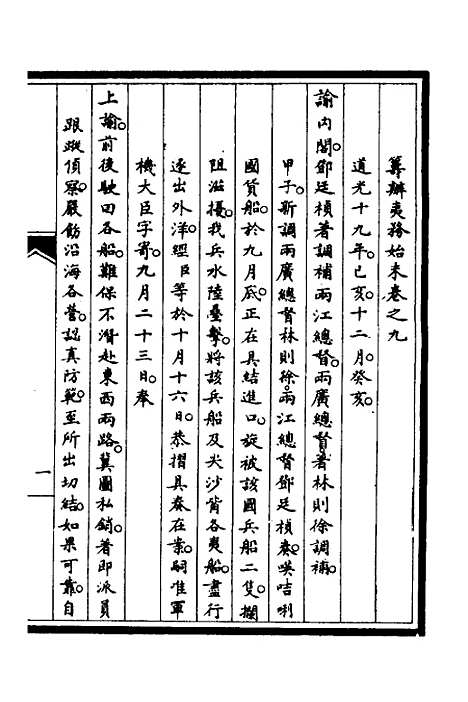 籌辦夷務始末卷之九
道光十九年。己亥。十二月。癸亥。
諭內閣。鄧廷楨著調補兩江總督。兩廣總督。著林則徐調補。
甲子。新調兩廣總督林則徐。兩江總督鄧廷楨奏。𠸄咭唎
國貨船。於九月底。正在具結進口。旋被該國兵船二隻。攔
阻滋擾。我兵水陸疊擊。將該兵船及尖沙嘴各夷船。盡行
逐出外洋。經臣等於十月十六日。恭摺具奏在案。嗣准軍
機大臣字寄。九月二十三日。奉
上諭。前後駛回各船。難保不潛赴東西兩路。冀圖私銷。著即派員
跟蹤偵察。嚴飭沿海各營。認真防範。至所出切結。如果可靠。自
一